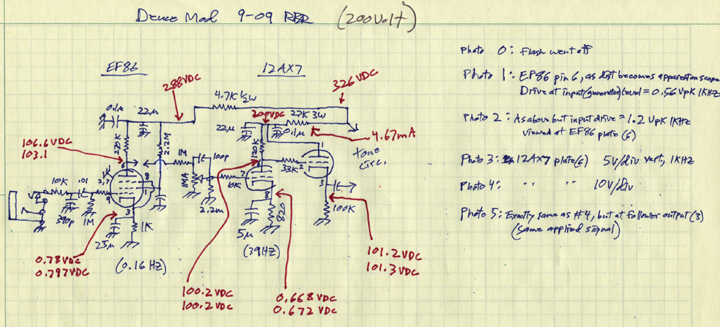 Deuce Mod 9-09 RBR (200 Volt)
EF86
12AX7
288VDC
326 VDC
4.7K 1/2W
200VDC
27K 3W
22μ
0.1μ
4.67mA
0.1μ
22μ
270K
2.2M
120K
tone
circ.
106.6 VDC
103.1
1M
100p
33K
10K
.01
1M
390p
1MA
10K
2.2m
820
100K
1K
25μ
5μ
(0.16 Hz)
(39Hz)
0.78 VDC
0.797 VDC
100.2 VDC
100.2 VDC
0.668 VDC
0.672 VDC
101.2 VDC
101.3 VDC
Photo 0: Flash went off
Photo 1: EF86 pin 6, as dist becomes apparent on scope
Drive at input (generator) level = 0.56 Vpk 1KHz
Photo 2: As above but input drive = 1.2 Vpk 1KHz
viewed at EF86 plate (6)
Photo 3: 12AX7 plate (6) 5V/div vert, 1KHz
Photo 4: " " " 10V/div
Photo 5: Exactly same as #4, but at follower output (3)
(same applied signal)